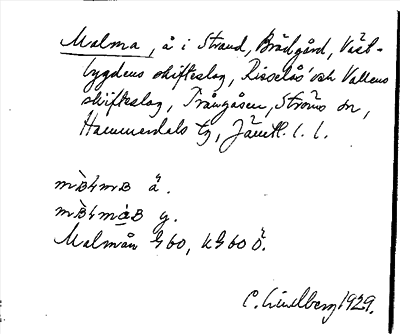 Malma, å i Strand, Brådgård, Väst-
bygdens skifteslag, Risselås och Vallens
skifteslag, Trångåsen, Ströms sn,
Hammerdals tg, Jämtl. l.
å.
g.
Malmån G 60, KG 60 Ö.
C. Lindberg 1929.